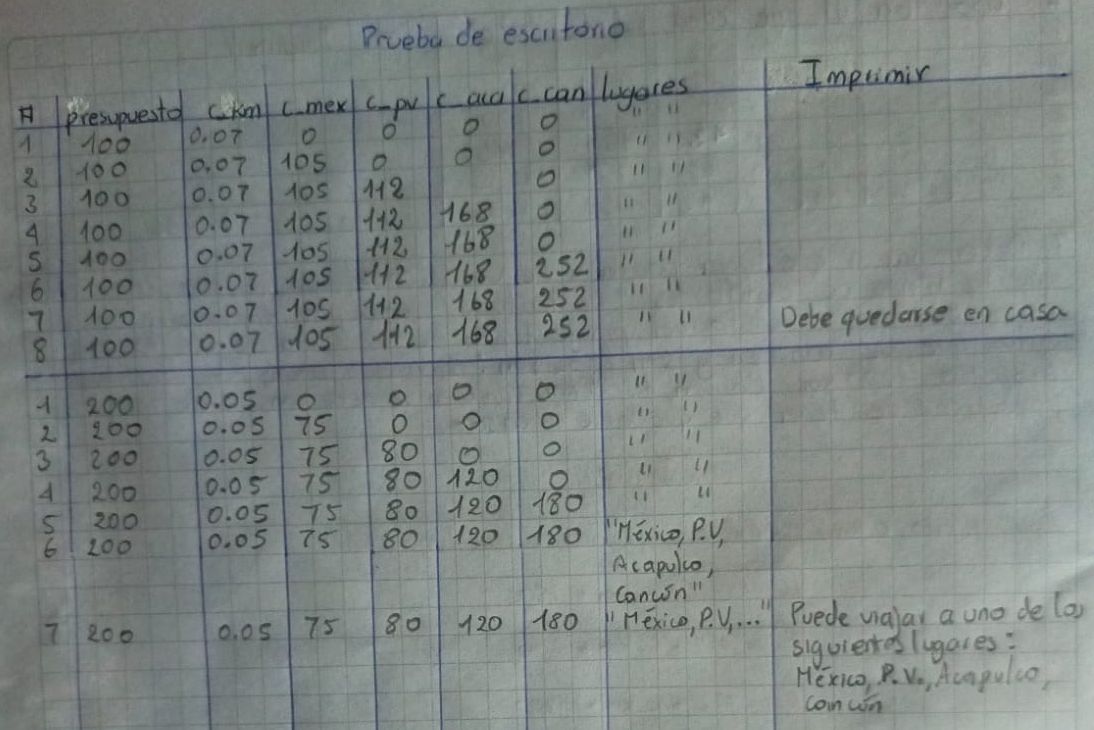 Prueba de escritorio
# presupuesto c_km c_mex c_pv c_aca c_can lugares Imprimir
1 100 0.07 0 0 0 0 " "
2 100 0.07 105 0 0 0 " "
3 100 0.07 105 112 0 " "
4 100 0.07 105 112 168 0 " "
5 100 0.07 105 112 168 0 " "
6 100 0.07 105 112 168 252 " "
7 100 0.07 105 112 168 252 " "
8 100 0.07 105 112 168 252 " " Debe quedarse en casa
1 200 0.05 0 0 0 0 " "
2 200 0.05 75 0 0 0 " "
3 200 0.05 75 80 0 0 " "
4 200 0.05 75 80 120 0 " "
5 200 0.05 75 80 120 180 " "
6 200 0.05 75 80 120 180 "México, P.V,
Acapulco,
Cancún"
7 200 0.05 75 80 120 180 "México, P.V,..." Puede viajar a uno de los
siguientes lugares:
México, P.V., Acapulco,
Cancún